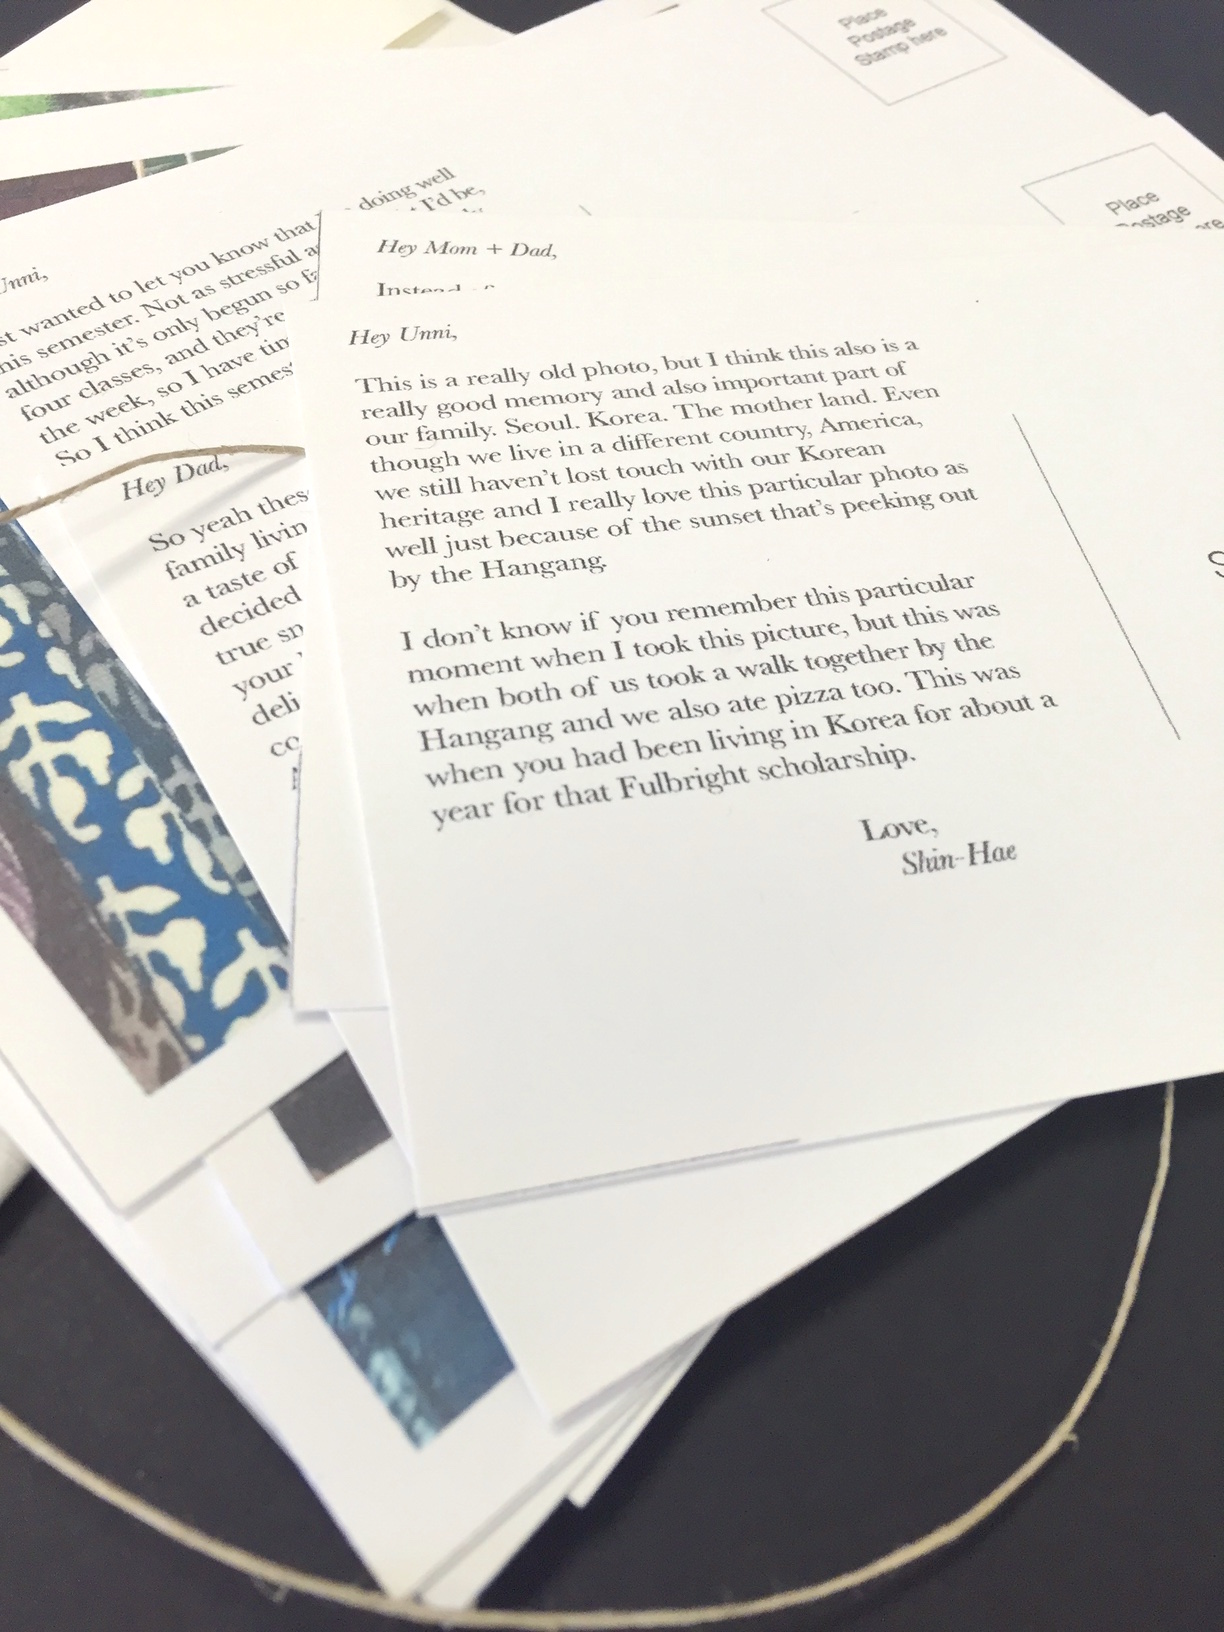 Place
Postage
Stamp here
Place
Postage
doing well
I'd be,
Unni,
wanted to let you know that
this semester. Not as stressful
although it's only begun so
four classes, and they're
the week, so I have
So I think this
Hey Mom + Dad,
Instead
Hey Dad,
So yeah
family
a taste of
decided
true
your
Hey Unni,
This is a really old photo, but I think this also is a
really good memory and also important part of
our family. Seoul. Korea. The mother land. Even
though we live in a different country, America,
we still haven't lost touch with our Korean
heritage and I really love this particular photo as
well just because of the sunset that's peeking out
by the Hangang.
I don't know if you remember this particular
moment when I took this picture, but this was
when both of us took a walk together by the
Hangang and we also ate pizza too. This was
when you had been living in Korea for about a
year for that Fulbright scholarship.
Love,
Shin-Hae
S